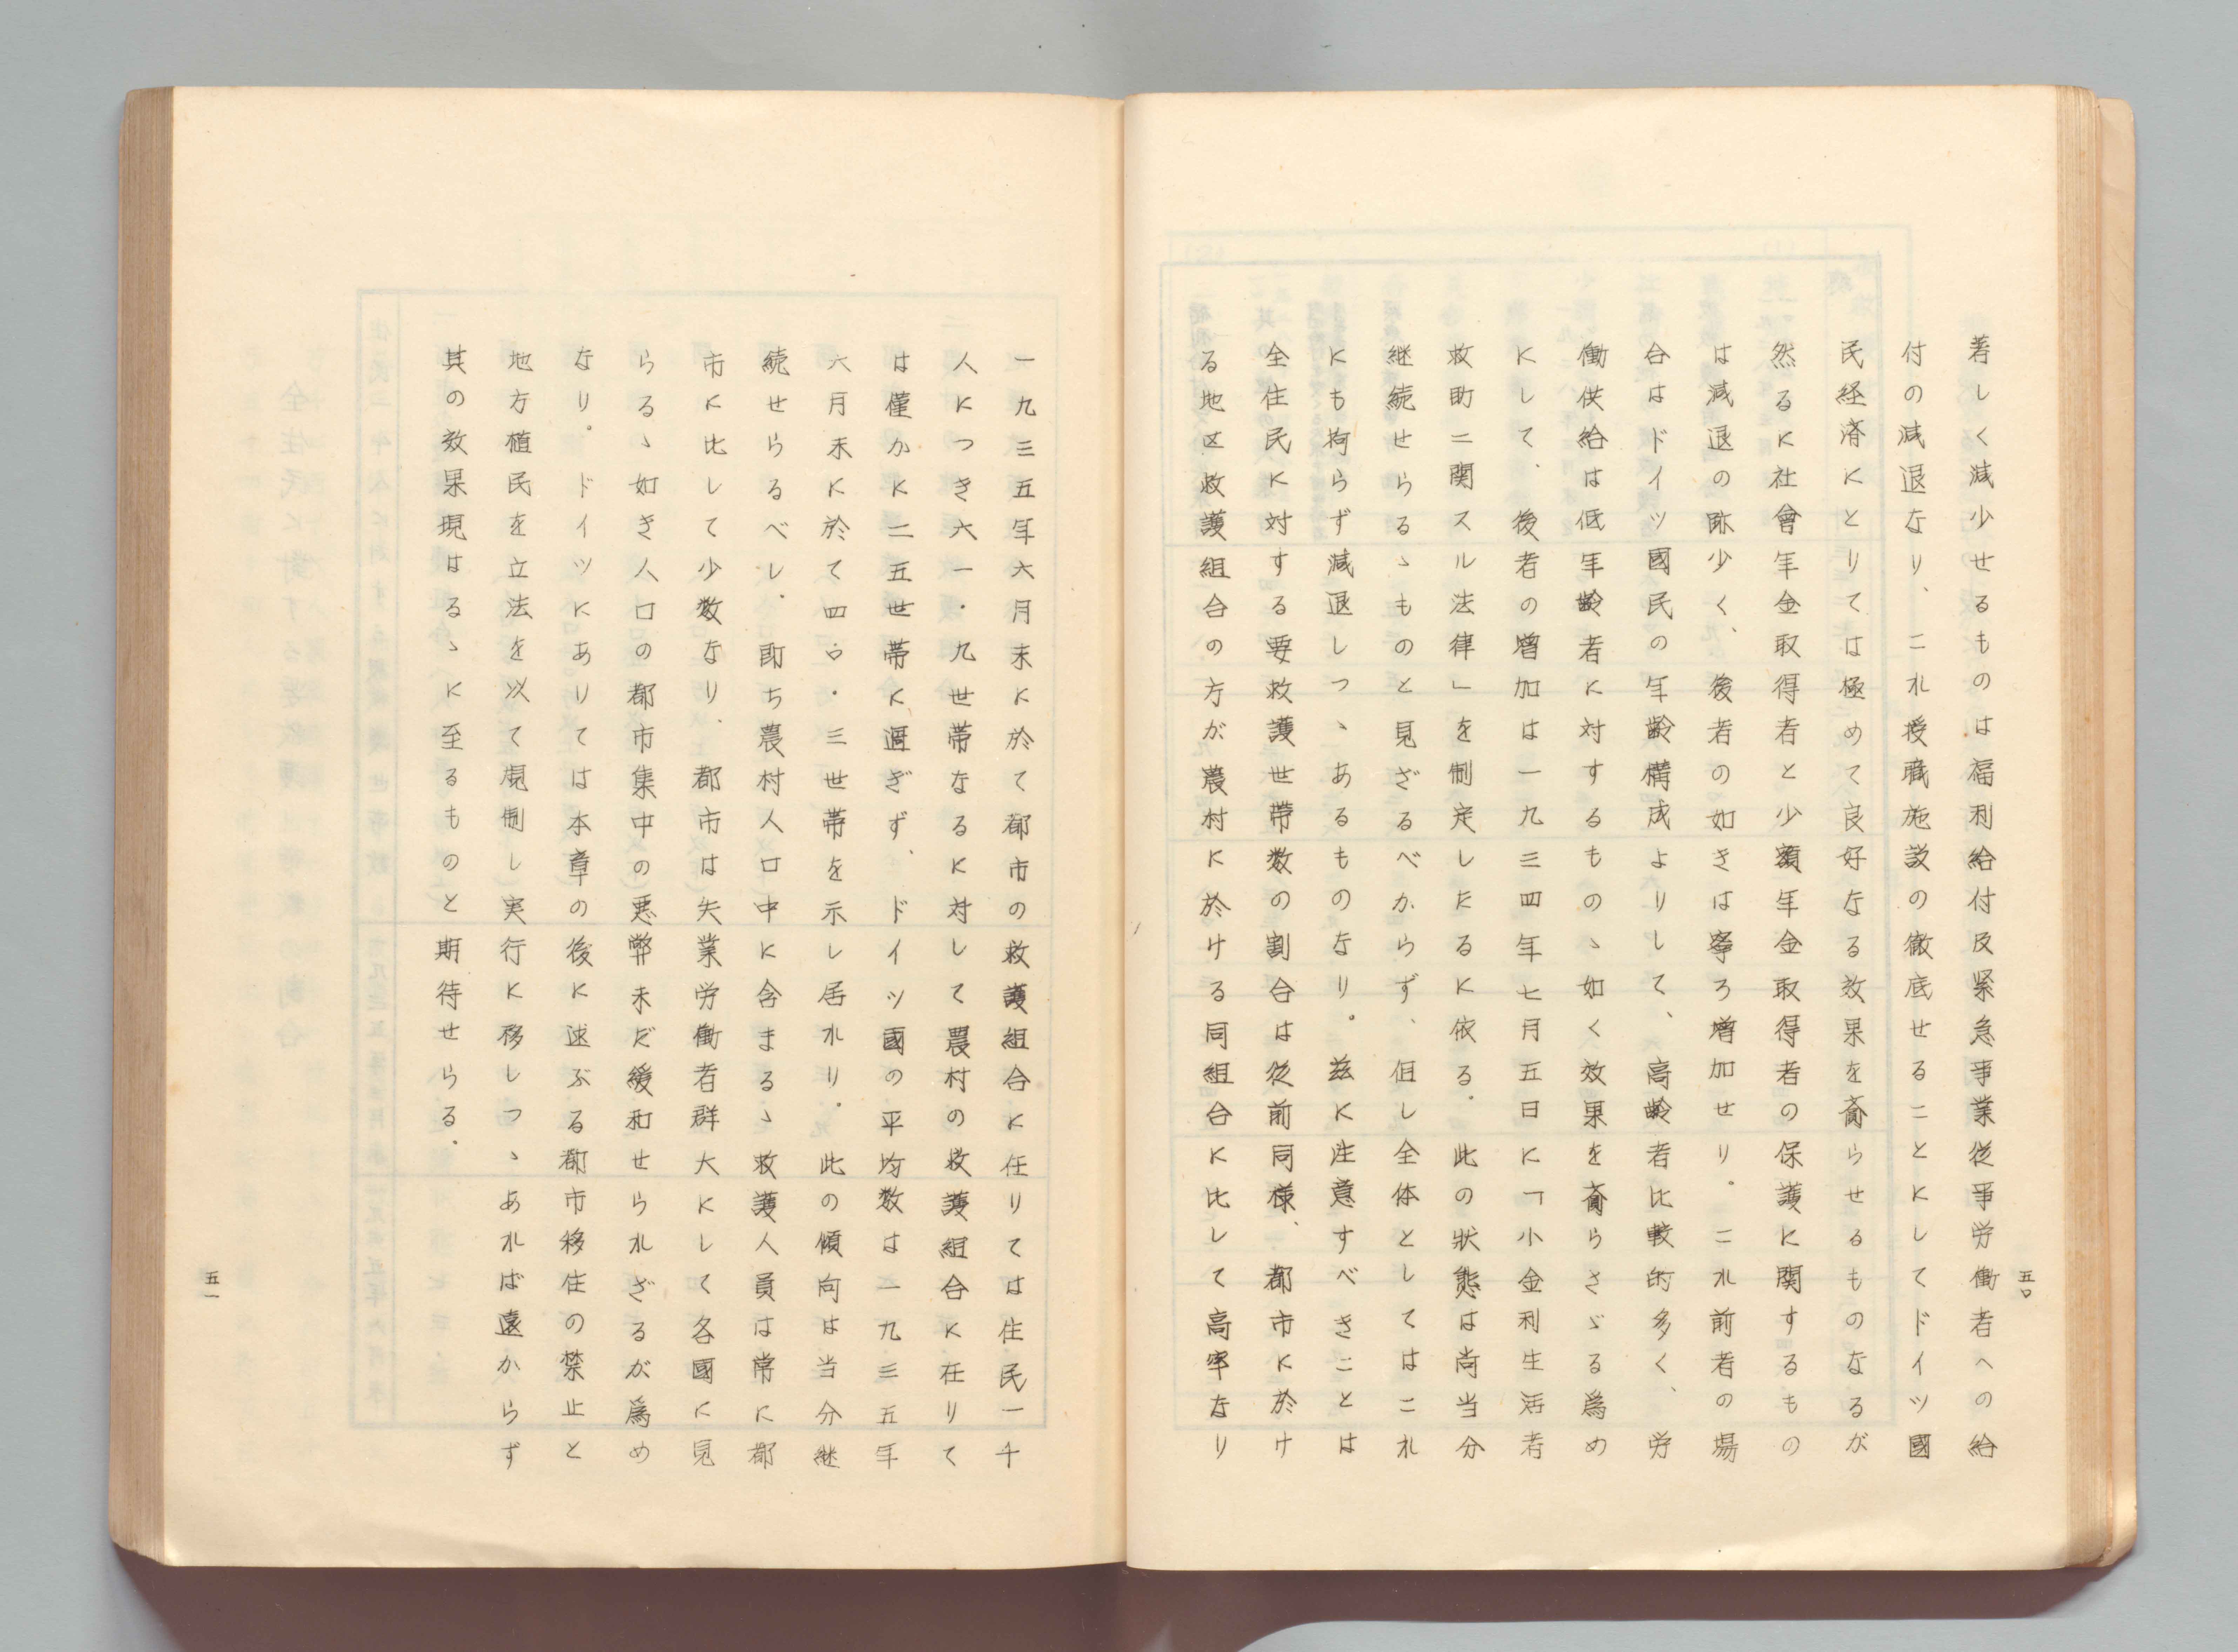 著しく減少せるものは福利給付及緊急事業従事労働者への給
付の減退なり、これ授職施設の徹底せることにしてドイツ國
民経済にとりては極めて良好なる效果を齎らせるものなるが
然るに社會年金取得者と少額年金取得者の保護に関するもの
は減退の跡少く、後者の如きは寧ろ増加せり。これ前者の場
合はドイツ國民の年齢構成よりして、高齢者比較的多く、労
働供給は低年齢者に対するものゝ如く效果を齎らさゞる為め
にして、後者の増加は一九三四年七月五日に「小金利生活者
救助ニ関スル法律」を制定したるに依る。此の状態は尚当分
継続せらるゝものと見ざるべからず、但し全体としてはこれ
にも拘らず減退しつゝあるものなり。茲に注意すべきことは
全住民に対する要救護世帯数の割合は従前同様、都市に於け
る地区救護組合の方が農村に於ける同組合に比して高率なり
五〇
一九三五年六月末に於て都市の救護組合に在りては住民一千
人につき六一・九世帯なるに対して農村の救護組合に在りて
は僅かに二五世帯に過ぎず、ドイツ國の平均数は一九三五年
六月末に於て四〇・三世帯を示し居れり。此の傾向は当分継
続せらるべし、即ち農村人口中に含まるゝ救護人員は常に都
市に比して少数なり、都市は失業労働者群大にして各國に見
らるゝ如き人口の都市集中の悪弊未だ緩和せられざるが為め
なり。ドイツにありては本章の後に述ぶる都市移住の禁止と
地方植民を立法を以て規制し実行に移しつゝあれば遠からず
其の效果現はるゝに至るものと期待せらる。
五一